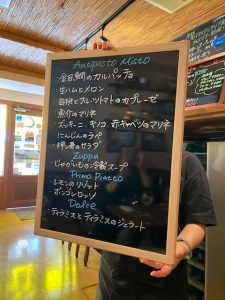 Antipasto Misto
・金目鯛のカルパッチョ
・生ハムとメロン
・白桃とフルーツトマトのカプレーゼ
・魚介のマリネ
・ズッキーニ、キノコ、赤キャベツのマリネ
・にんじんのラペ
・押し麦のサラダ
Zuppa
・じゃがいもの冷製スープ
Primo Piatto
レモンのリゾット
ボンゴレロッソ
Dolce
ティラミスとティラミスのジェラート